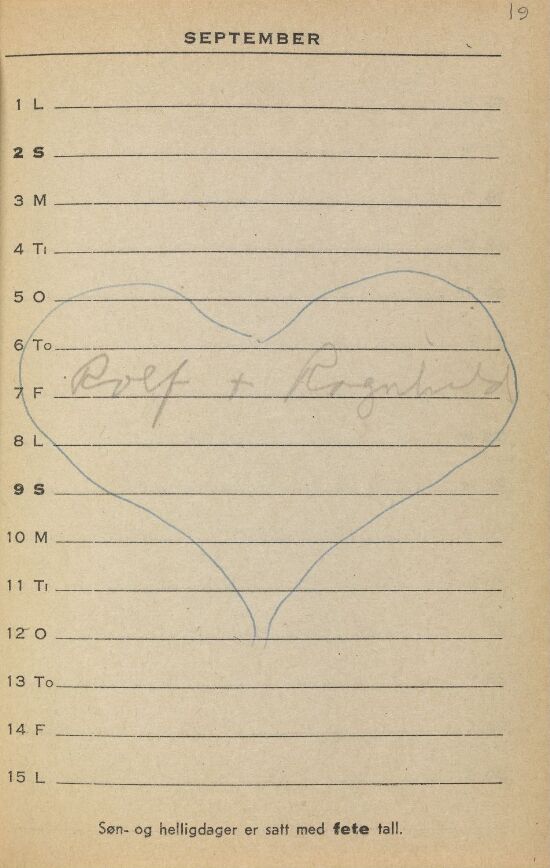 19
SEPTEMBER
1 L
2 S
3 M
4 Ti
5 O
6 To
Rolf + Ragnhild
7 F
8 L
9 S
10 M
11 Ti
12 O
13 To
14 F
15 L
Søn- og helligdager er satt med fete tall.